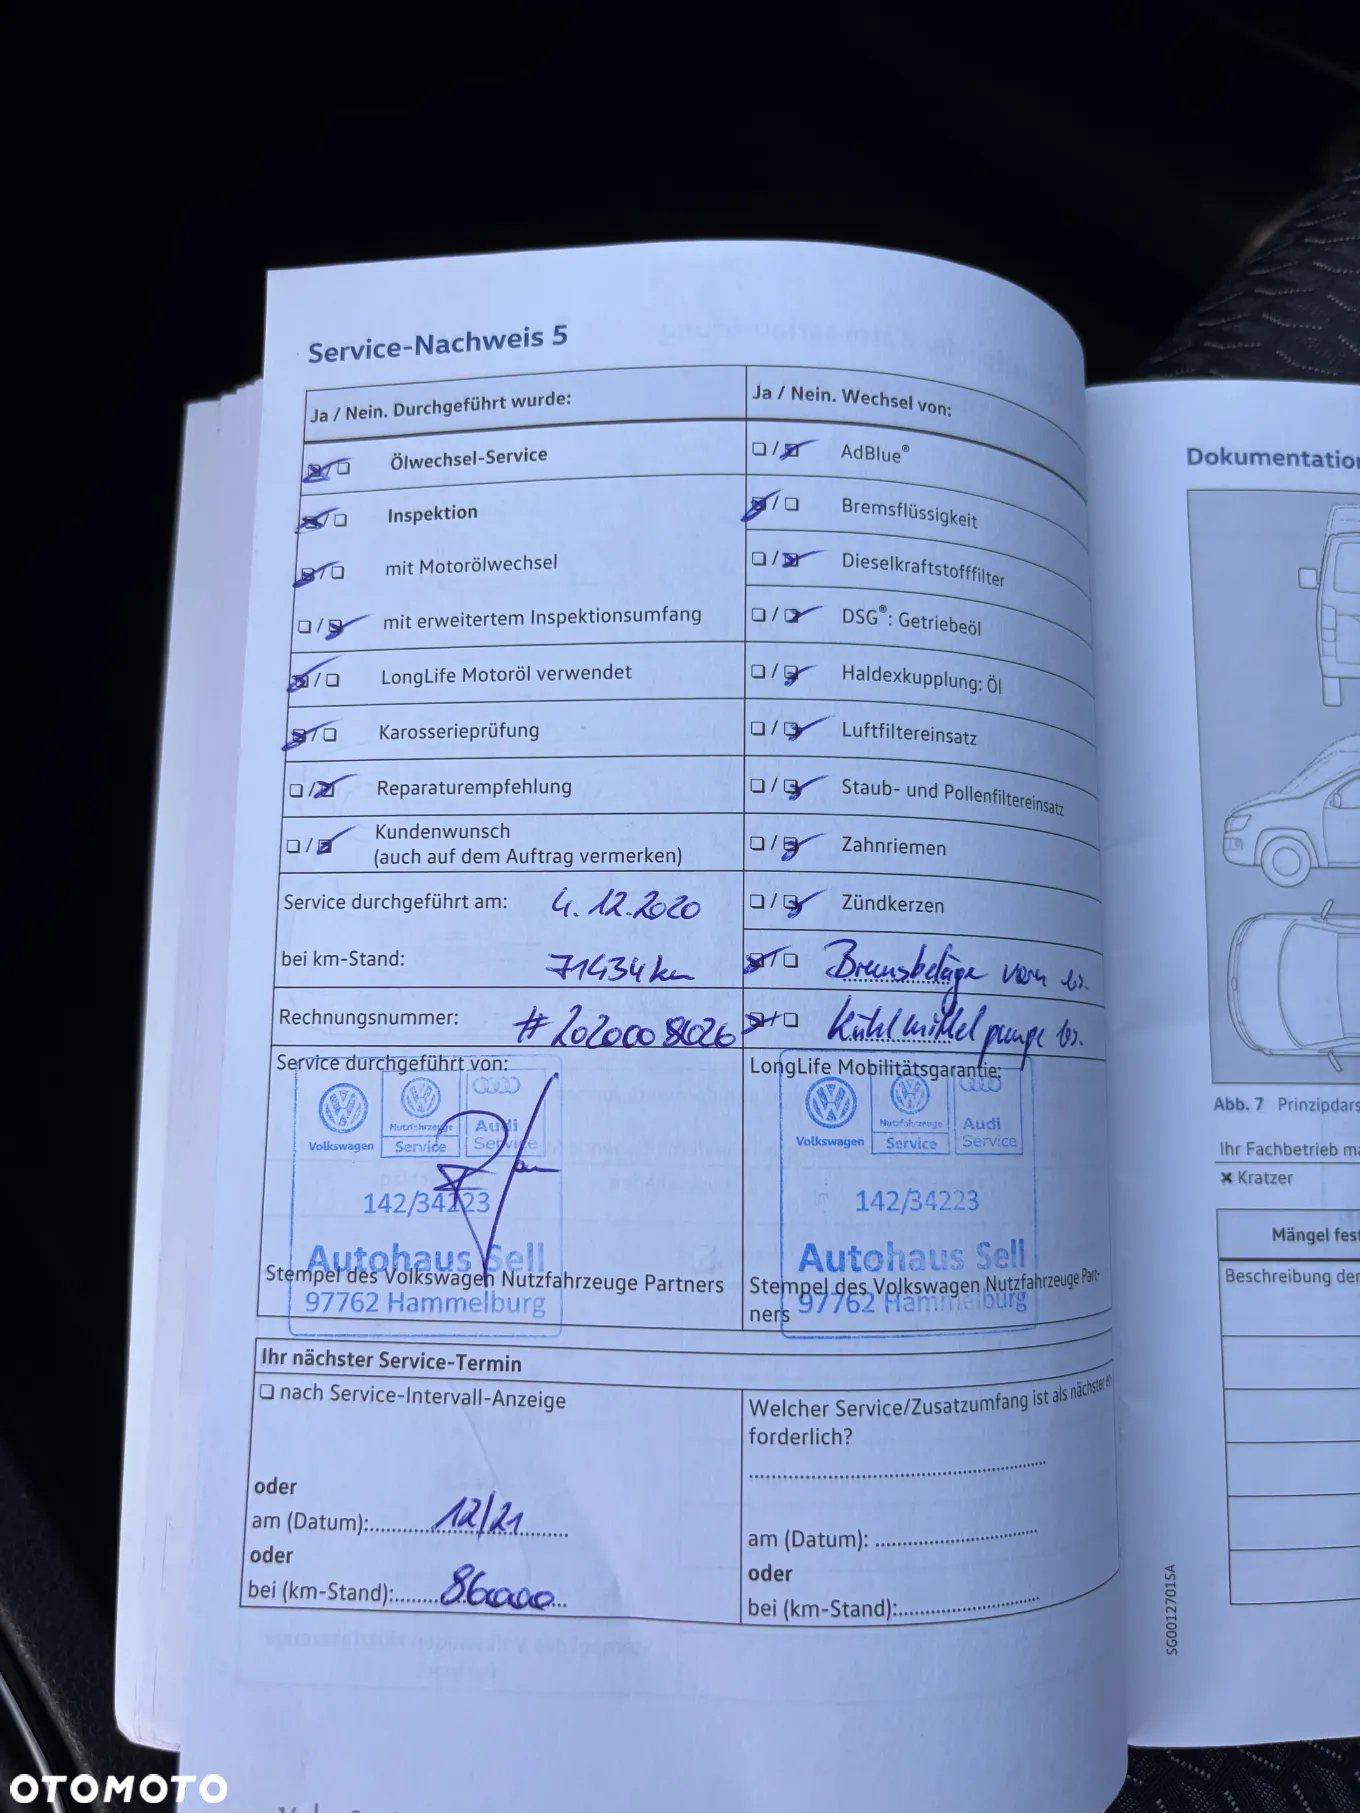 Service-Nachweis 5
Ja / Nein. Durchgeführt wurde:
Ölwechsel-Service
Inspektion
mit Motorölwechsel
mit erweitertem Inspektionsumfang
LongLife Motoröl verwendet
Karosserieprüfung
Reparaturempfehlung
Kundenwunsch
(auch auf dem Auftrag vermerken)
Service durchgeführt am: 4.12.2020
bei km-Stand: 71434 km
Rechnungsnummer: #2020008026
Service durchgeführt von:
Volkswagen
Nutzfahrzeuge
Service
Audi
Service
142/34223
Autohaus Sell
Stempel des Volkswagen Nutzfahrzeuge Partners
97762 Hammelburg
Ja / Nein. Wechsel von:
AdBlue®
Bremsflüssigkeit
Dieselkraftstofffilter
DSG®: Getriebeöl
Haldexkupplung: Öl
Luftfiltereinsatz
Staub- und Pollenfiltereinsatz
Zahnriemen
Zündkerzen
Bremsbeläge vorn
Kühlmittelpumpe
LongLife Mobilitätsgarantie:
Volkswagen
Nutzfahrzeuge
Service
Audi
Service
142/34223
Autohaus Sell
Stempel des Volkswagen Nutzfahrzeuge Part-
ners
97762 Hammelburg
Ihr nächster Service-Termin
nach Service-Intervall-Anzeige
oder
am (Datum): 12/21
oder
bei (km-Stand): 86000
Welcher Service/Zusatzumfang ist als nächster er-
forderlich?
am (Datum):
oder
bei (km-Stand):
Dokumentation
Abb. 7 Prinzipdars
Ihr Fachbetrieb ma
✖ Kratzer
Mängel fest
Beschreibung der
SG0012701SA
OTOMOTO